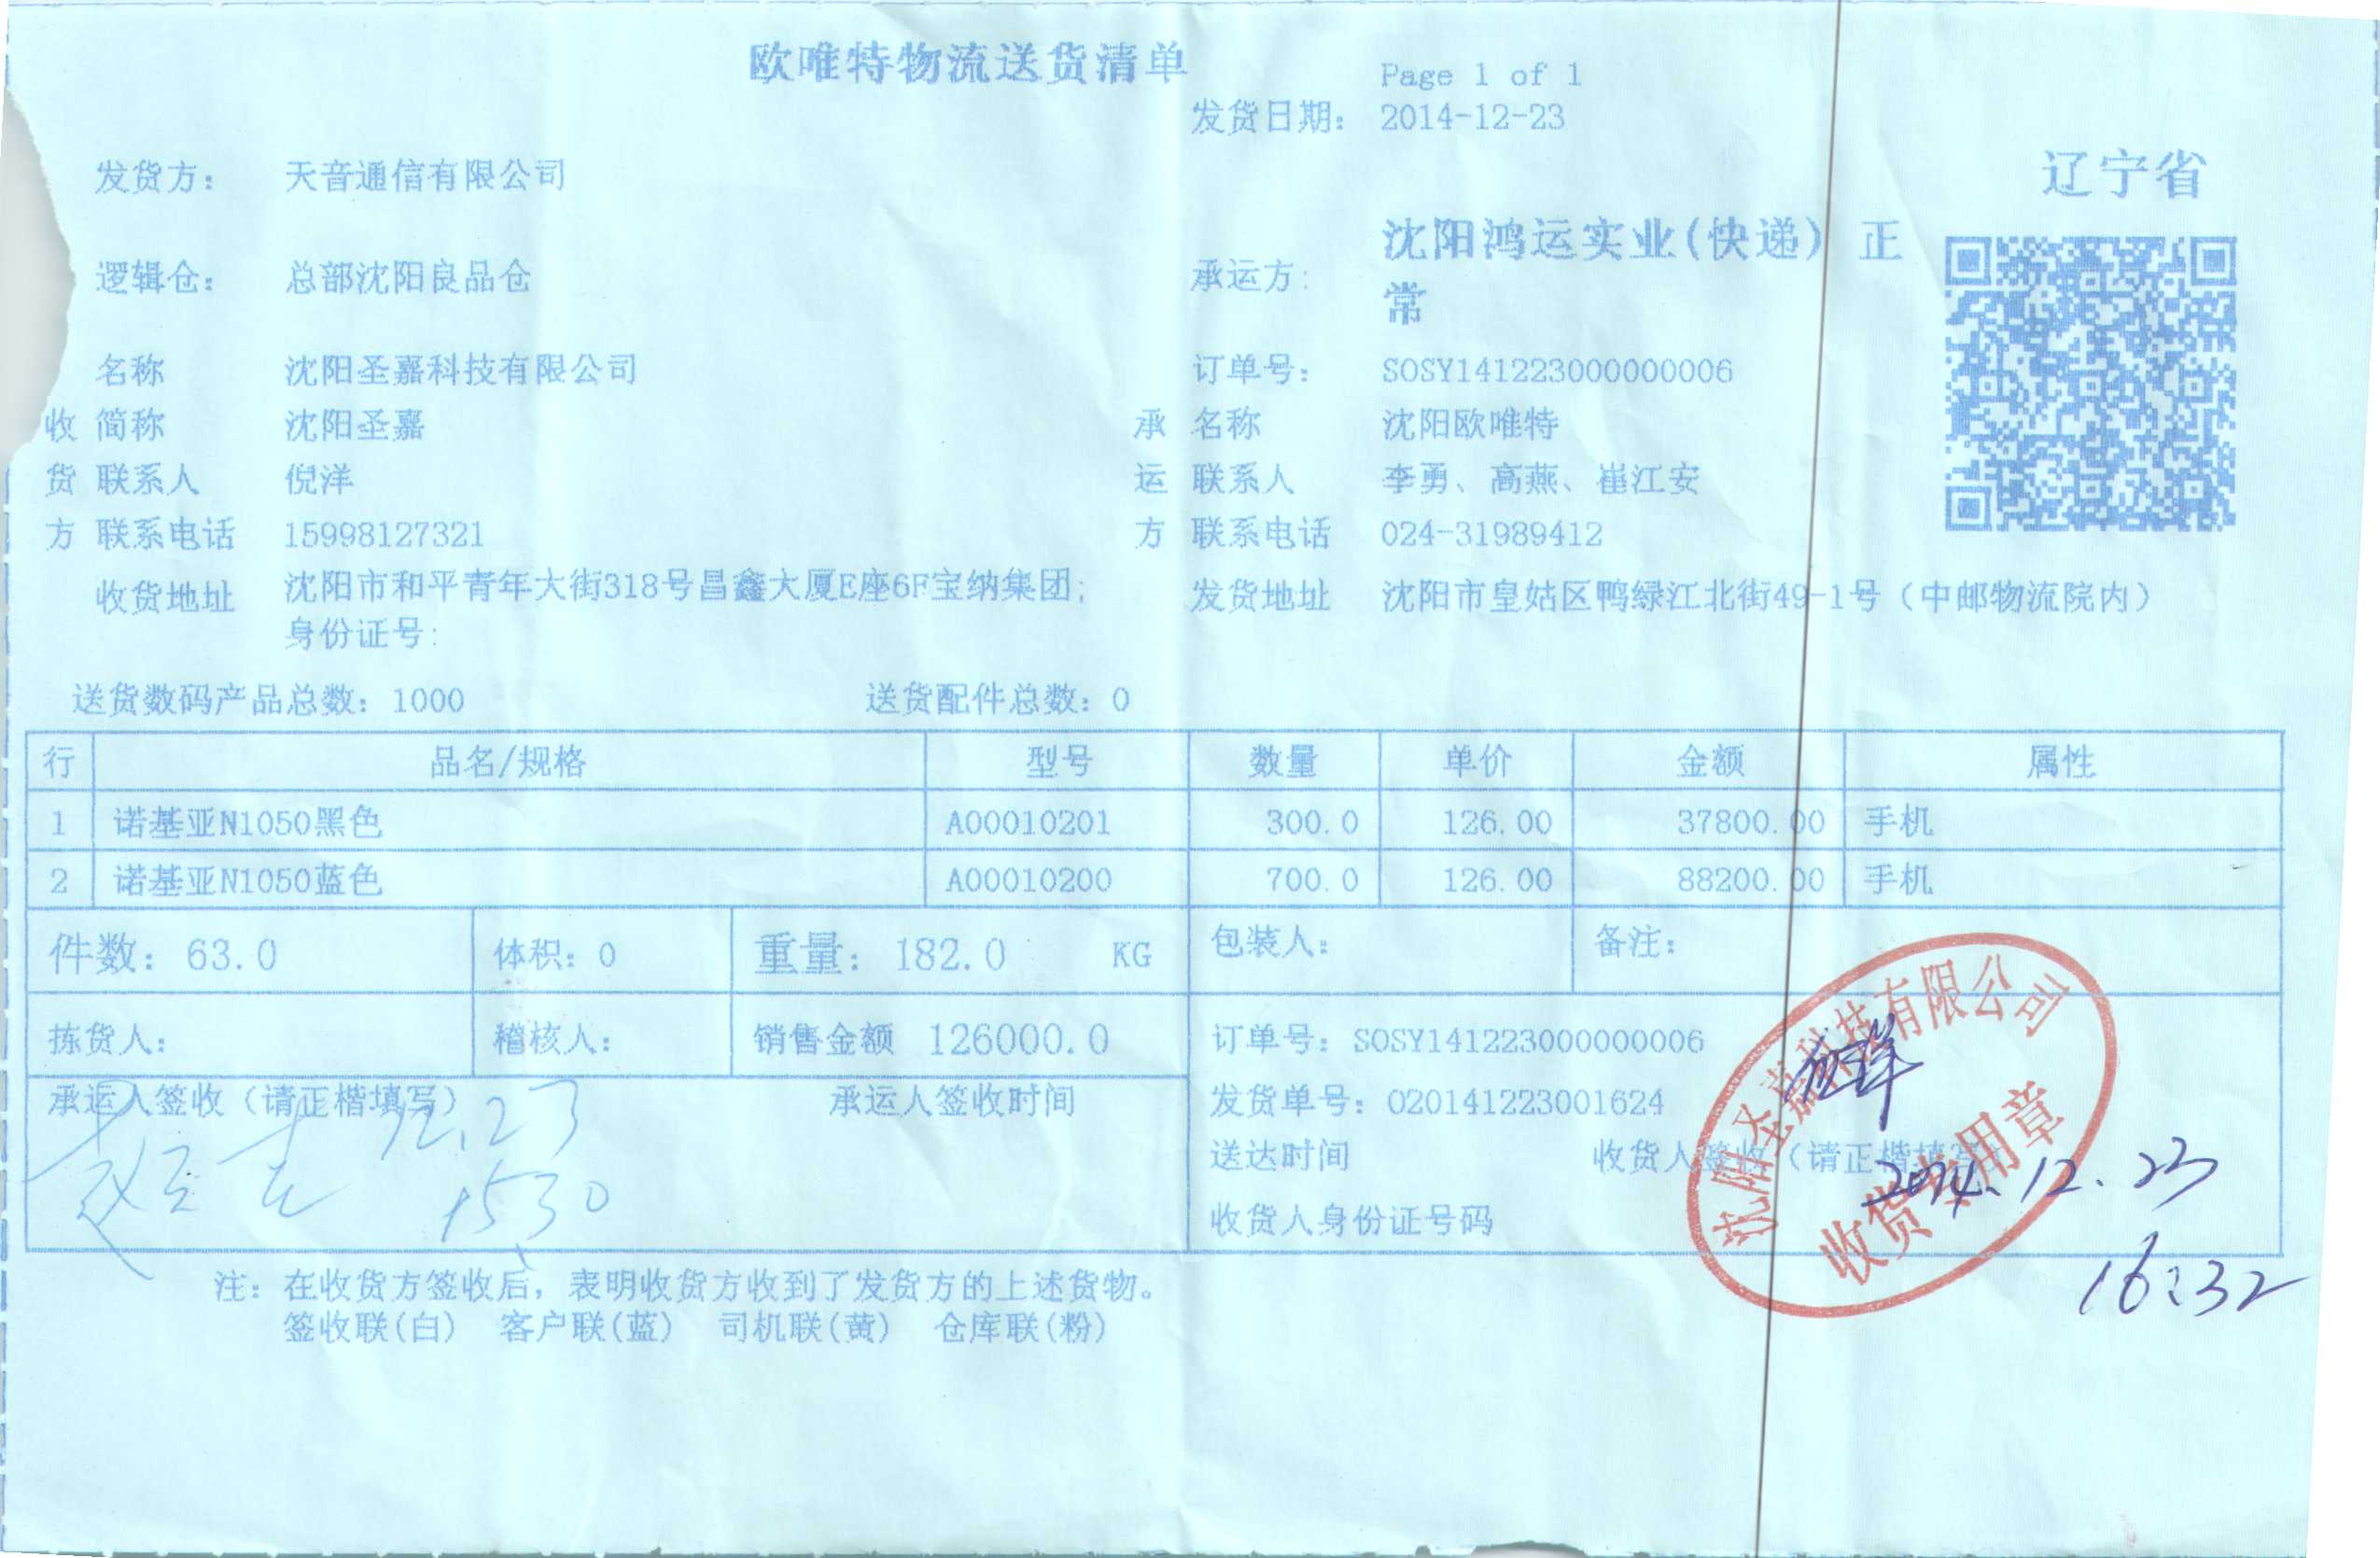 欧唯特物流送货清单
Page 1 of 1
发货日期: 2014-12-23
辽宁省
发货方: 天音通信有限公司
逻辑仓: 总部沈阳良品仓 承运方: 沈阳鸿运实业(快递) 正
常
名称 沈阳圣嘉科技有限公司 订单号: SOSY141223000000006
收 简称 沈阳圣嘉 承 名称 沈阳欧唯特
货 联系人 倪洋 运 联系人 李勇、高燕、崔江安
方 联系电话 15998127321 方 联系电话 024-31989412
收货地址 沈阳市和平青年大街318号昌鑫大厦E座6F宝纳集团; 发货地址 沈阳市皇姑区鸭绿江北街49-1号（中邮物流院内）
身份证号:
送货数码产品总数: 1000 送货配件总数: 0
行 品名/规格 型号 数量 单价 金额 属性
1 诺基亚N1050黑色 A00010201 300.0 126.00 37800.00 手机
2 诺基亚N1050蓝色 A00010200 700.0 126.00 88200.00 手机
件数: 63.0 体积: 0 重量: 182.0 KG 包装人: 备注:
拣货人: 稽核人: 销售金额 126000.0 订单号: SOSY141223000000006
承运人签收（请正楷填写） 承运人签收时间 发货单号: 020141223001624
12.23
1530
送达时间 收货人签收（请正楷填写）
收货人身份证号码
沈阳圣嘉科技有限公司
收货专用章
2014.12.23
16:32
注: 在收货方签收后, 表明收货方收到了发货方的上述货物。
签收联(白) 客户联(蓝) 司机联(黄) 仓库联(粉)